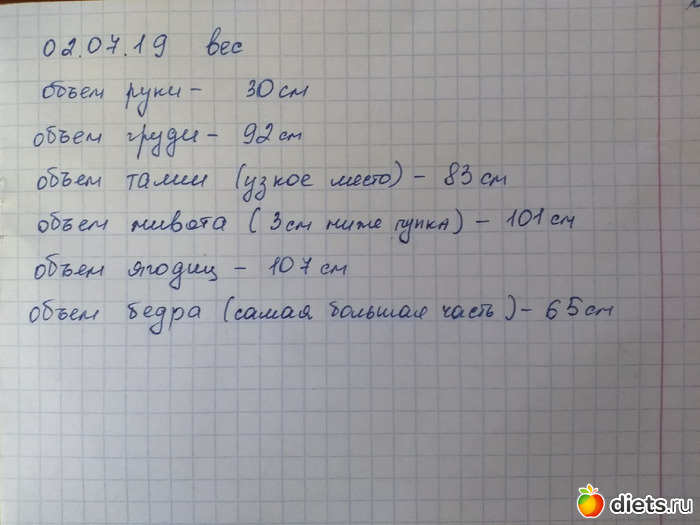 02.07.19 вес
объем руки - 30 см
объем груди - 92 см
объем талии (узкое место) - 83 см
объем живота (3 см ниже пупка) - 101 см
объем ягодиц - 107 см
объем бедра (самая большая часть) - 65 см
diets.ru